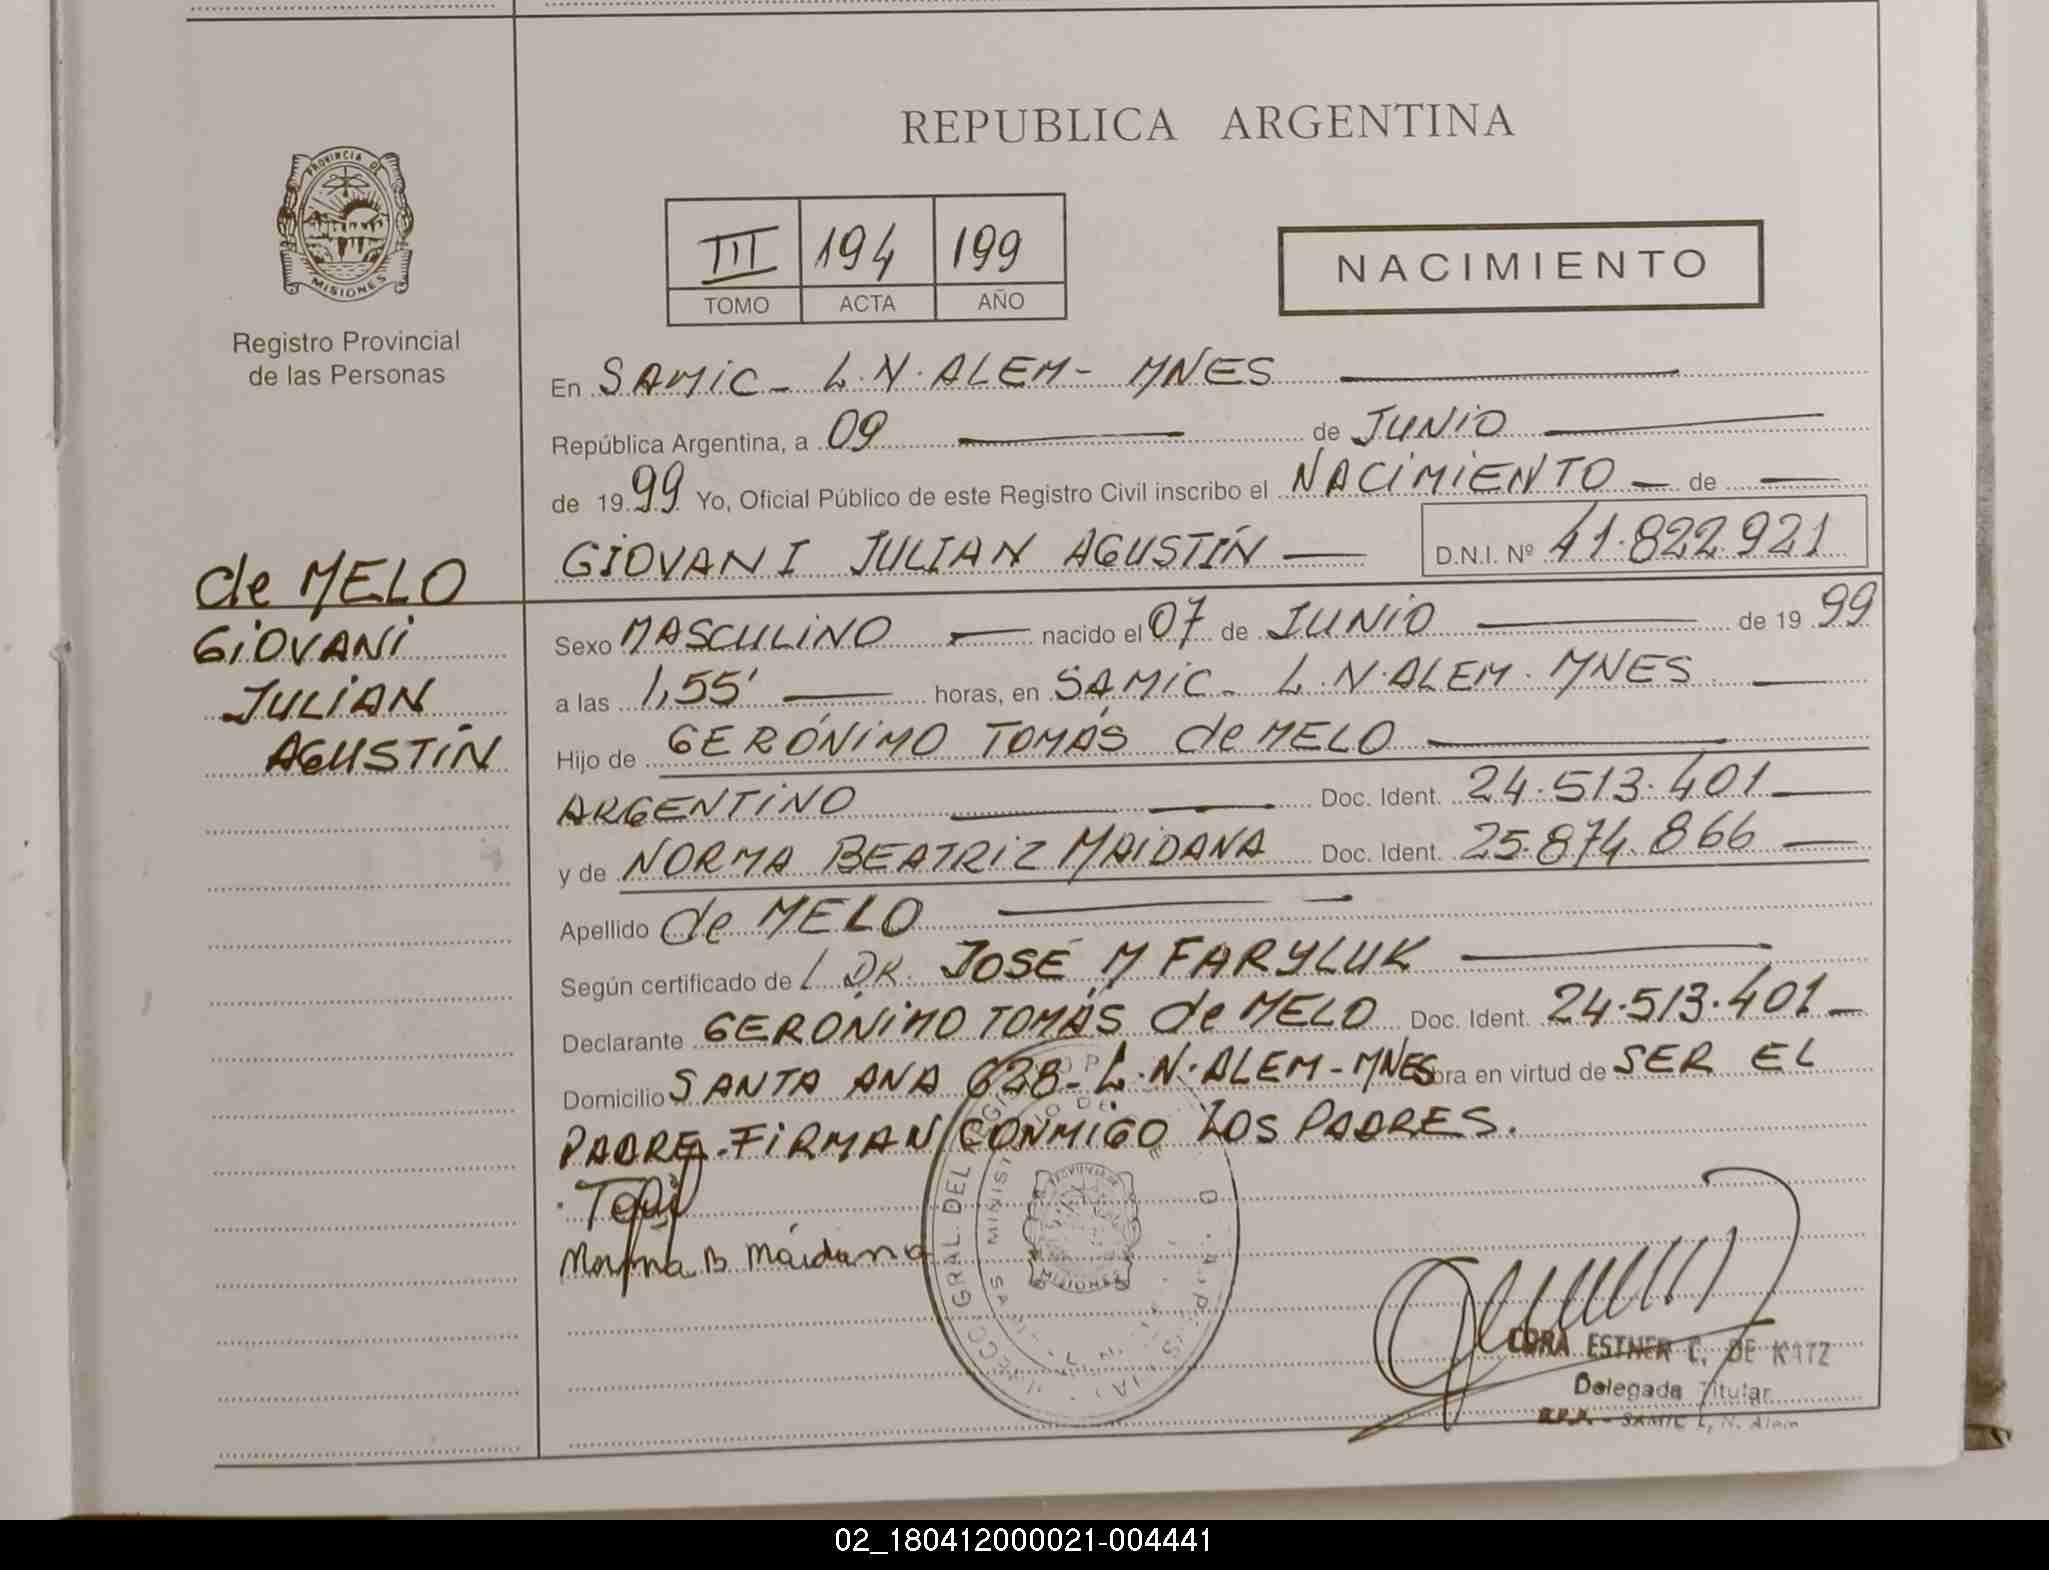 REPUBLICA ARGENTINA
PROVINCIA DE
MISIONES
Registro Provincial
de las Personas
III 194 199
TOMO ACTA AÑO
NACIMIENTO
En SAMIC - L.N. ALEM - MNES
República Argentina, a 09 de JUNIO
de 1999 Yo, Oficial Público de este Registro Civil inscribo el NACIMIENTO de
GIOVANI JULIAN AGUSTÍN D.N.I. Nº 41.822.921
de MELO
GIOVANI
JULIAN
AGUSTÍN
Sexo MASCULINO nacido el 07 de JUNIO de 1999
a las 1,55' horas, en SAMIC - L.N. ALEM. MNES
Hijo de GERÓNIMO TOMÁS de MELO
ARGENTINO Doc. Ident. 24.513.401
y de NORMA BEATRIZ MAIDANA Doc. Ident. 25.874.866
Apellido de MELO
Según certificado de DR. JOSÉ M FARYLUK
Declarante GERÓNIMO TOMÁS de MELO Doc. Ident. 24.513.401
Domicilio SANTA ANA 628 - L.N. ALEM - MNES obra en virtud de SER EL
PADRE. FIRMAN CONMIGO LOS PADRES.
Norma B Maidana
MISIONES
CORA ESTHER C. DE KATZ
Delegada Titular
R.P.P. - SAMIC L. N. Alem
02_180412000021-004441